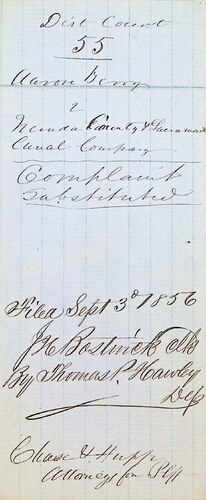 Dist Court
55
Aaron Berry
v
Nevada County & Sacramento
Canal Company
Complaint
Substituted
Filed Sept 3d 1856
J H Bostwick Clk
By Thomas P. Hawley
Dep
Chase &
Attorneys for Plff